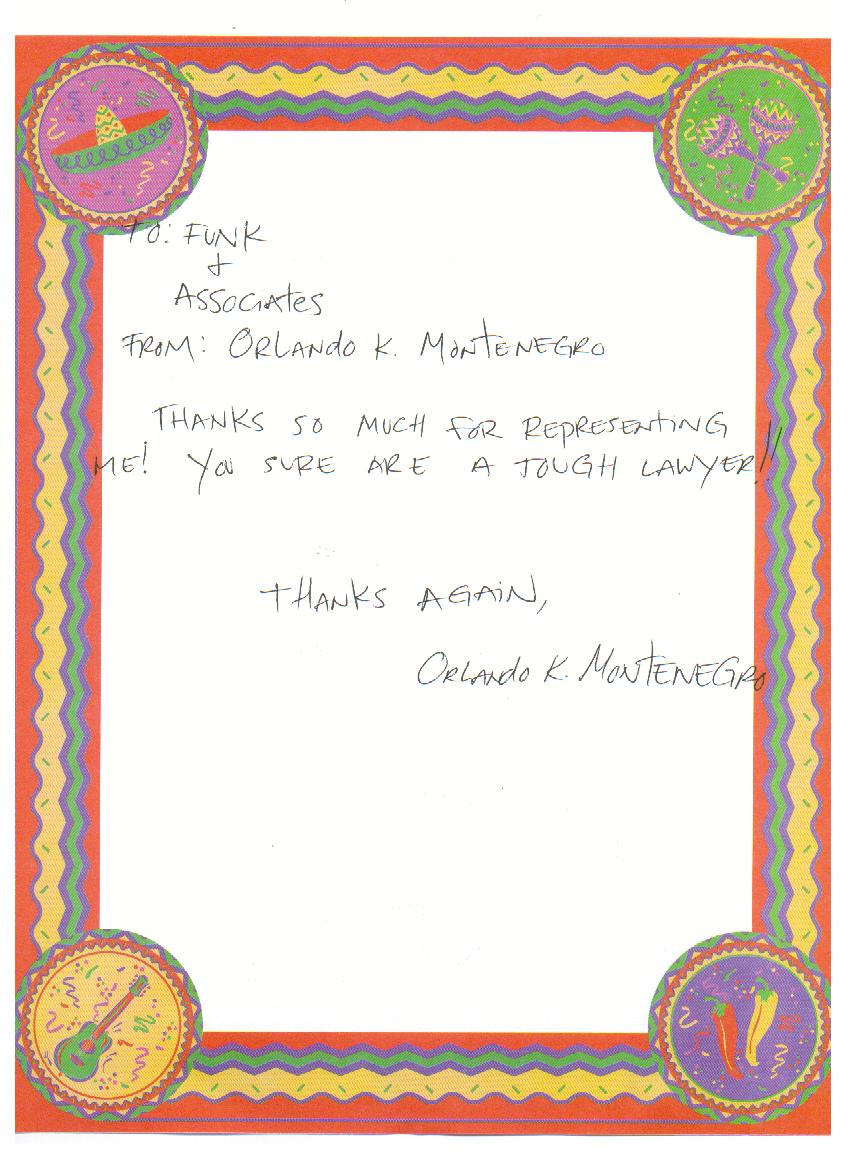 TO: FUNK
+
ASSOCIATES
FROM: ORLANDO K. MONTENEGRO
THANKS SO MUCH FOR REPRESENTING
ME! YOU SURE ARE A TOUGH LAWYER!!
THANKS AGAIN,
ORLANDO K. MONTENEGRO